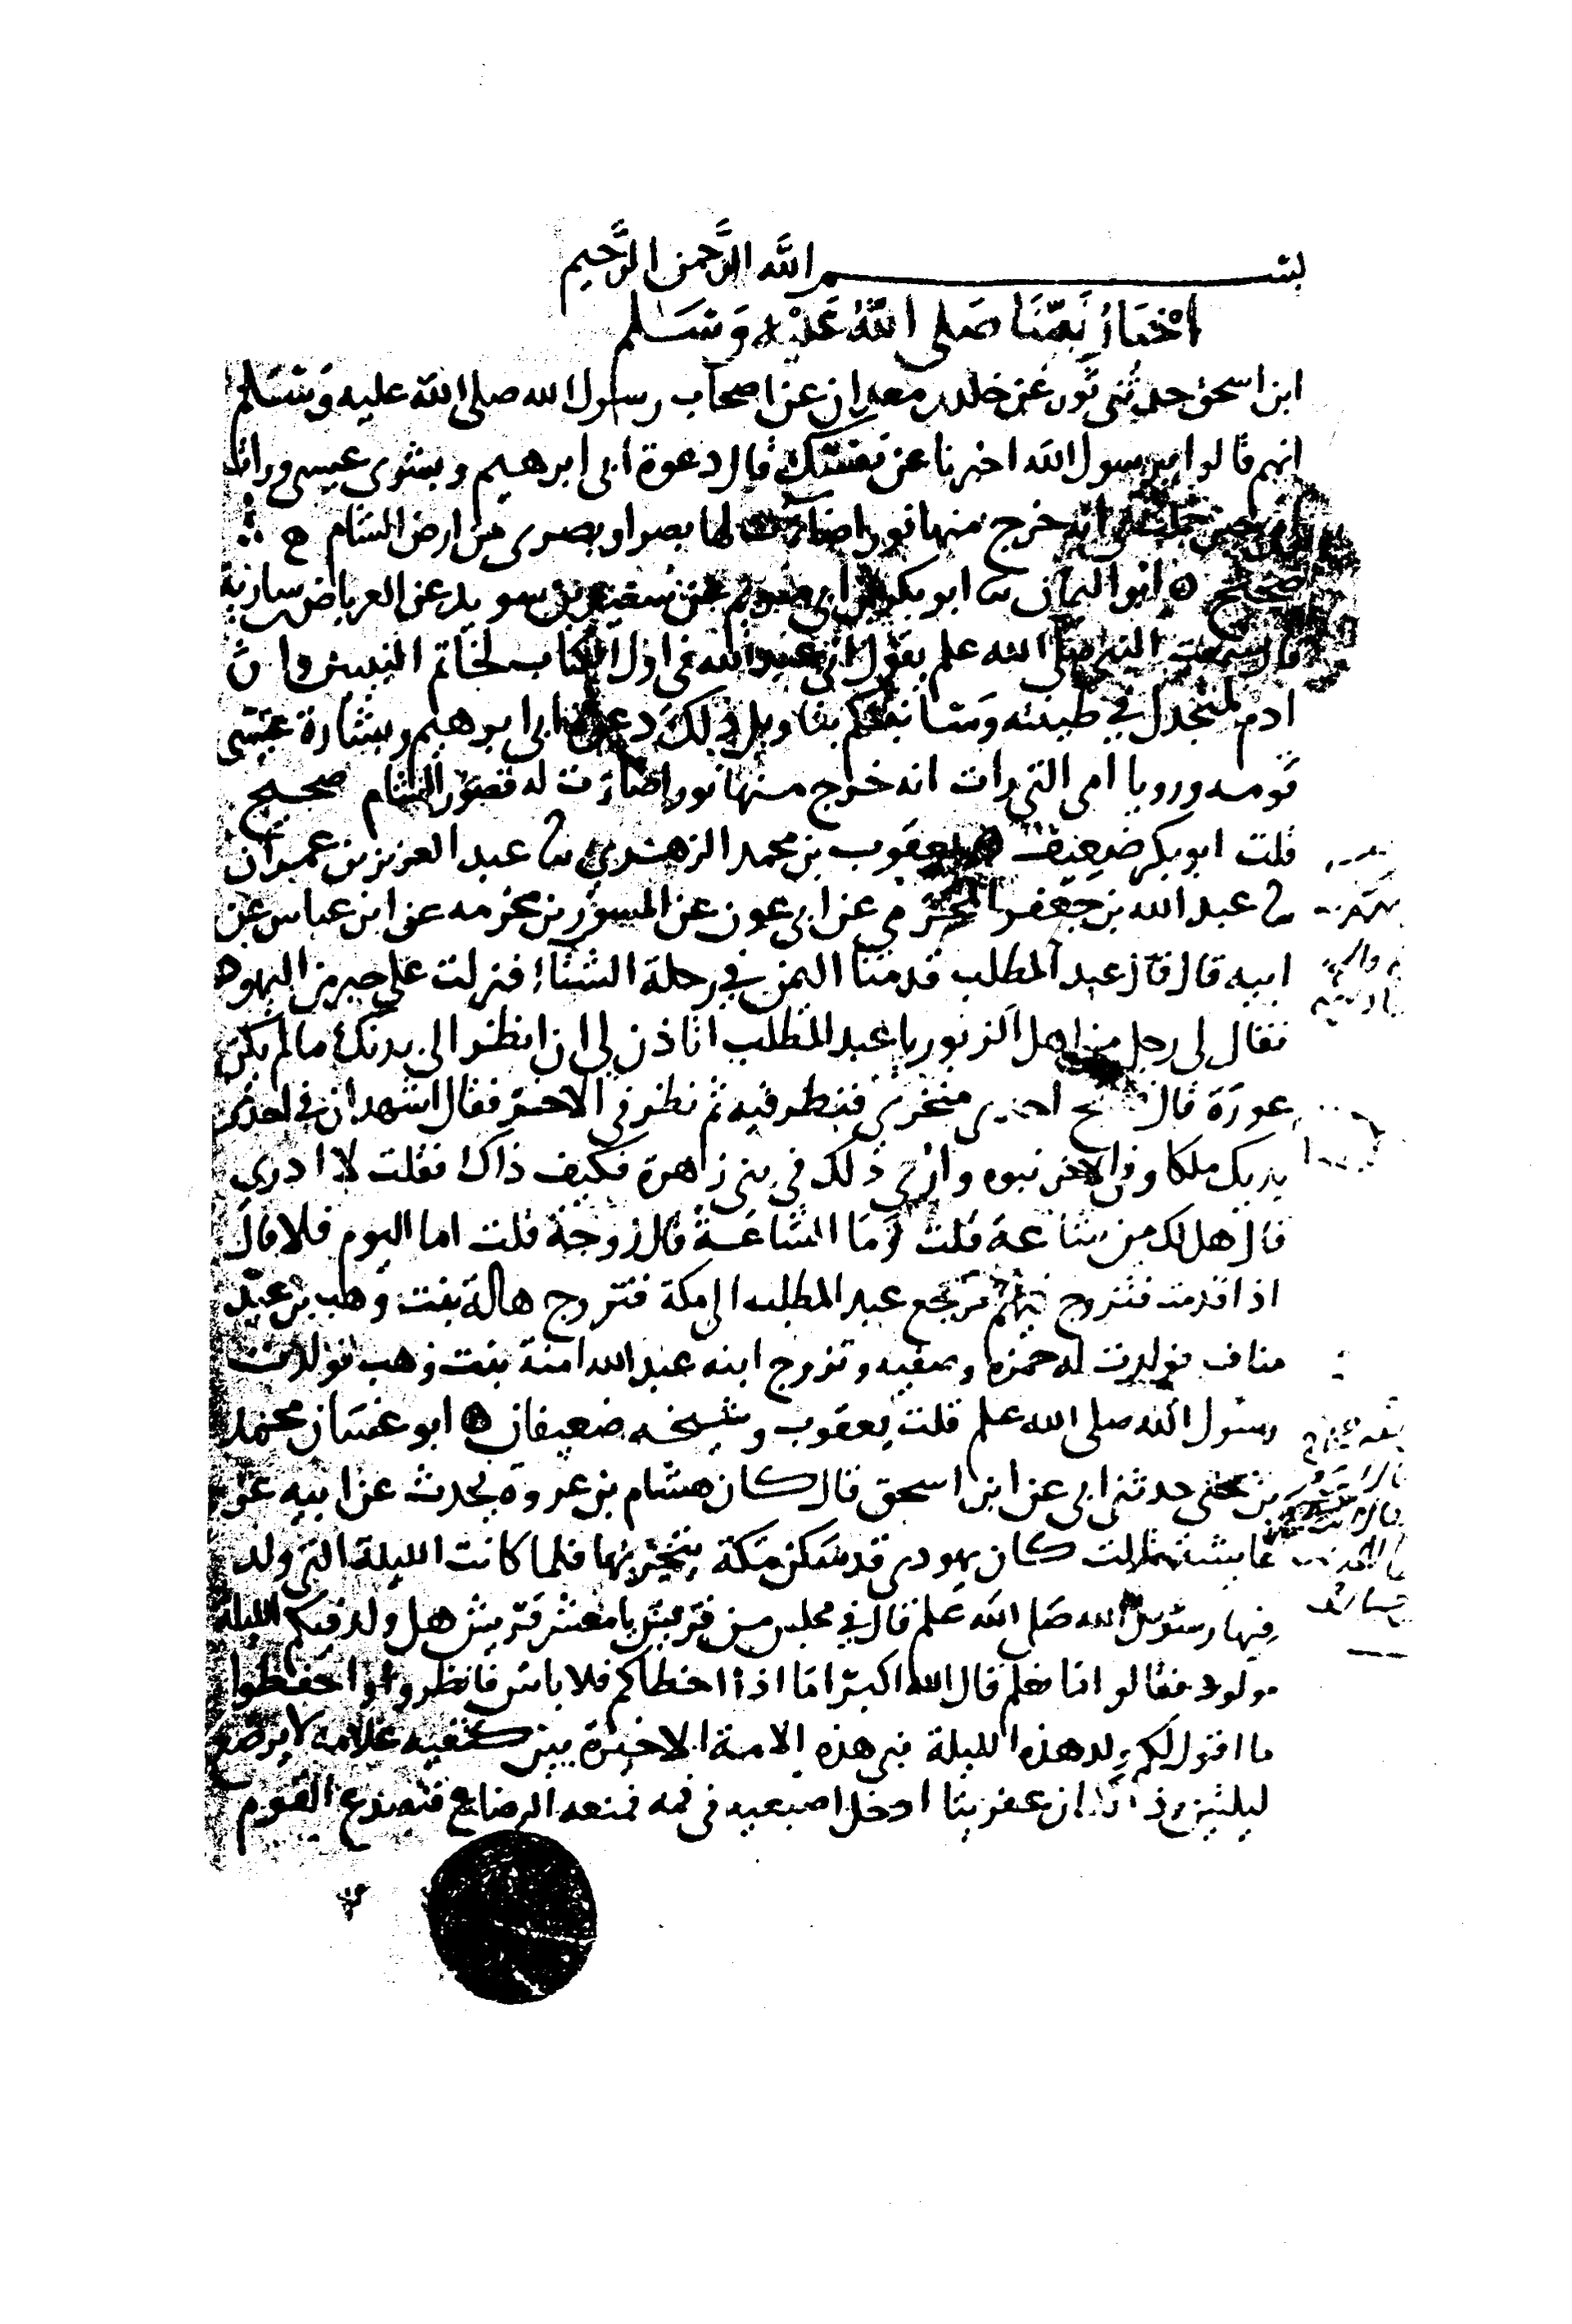 بسم الله الرحمن الرحيم
اخبار نبينا صلى الله عليه وسلم
ابن اسحق حدثني ثور عن خلد بن معدان عن اصحاب رسول الله صلى الله عليه وسلم
انهم قالوا يرسول الله اخبرنا عن نفسك قال دعوة ابي ابرهيم وبشرى عيسى ورات
امي حين حملت بي انه خرج منها نور اضاءت لها بصرا وبصرى من ارض الشام
صحيح ابو اليمان ثنا ابو بكر بن ابي مريم عن سعيد بن سويد عن العرباض بن سارية
قال سمعت النبي صلى الله علم يقول اني عبد الله في اول الكتاب لخاتم النبيين وان
ادم لمنجدل في طينته وسانبئكم بتاويل ذلك دعوة ابي ابرهيم وبشارة عيسى
قومه ورويا امي التي رات انه خرج منها نور اضاءت له قصور الشام صحيح
قلت ابو بكر ضعيف يعقوب بن محمد الزهري ثنا عبد العزيز بن عمران
ثنا عبد الله بن جعفر المخرمي عن ابي عون عن المسور بن مخرمه عن ابن عباس عن
ابيه قال قال عبد المطلب قدمنا اليمن في رحلة الشتاء فنزلت على حبر من اليهود
فقال لي رجل من اهل الزبور يا عبد المطلب اتاذن لي ان انظر الى بدنك ما لم يكن
عورة قال ففتح احدى منخري فنظر فيه ثم نظر في الاخر فقال اشهد ان في احدى
يديك ملكا وفي الاخر نبوه وارى ذلك في بني زهرة فكيف ذاك فقلت لا ادري
قال هل لك من شاعة قلت وما الشاعة قال زوجة قلت اما اليوم فلا قال
اذا قدمت فتزوج فيهم فرجع عبد المطلب الى مكة فتزوج هالة بنت وهب بن عبد
مناف فولدت له حمزه وصفيه وتزوج ابنه عبد الله امنة بنت وهب فولدت
رسول الله صلى الله علم قلت يعقوب وشيخه ضعيفان ابو غسان محمد
بن يحيى حدثني ابي عن ابن اسحق قال كان هشام بن عروه يحدث عن ابيه عن
عايشة قالت كان يهودي قد سكن مكة يتجر بها فلما كانت الليلة التي ولد
فيها رسول الله صلى الله علم قال في مجلس من قريش يا معشر قريش هل ولد فيكم الليلة
مولود فقالوا لا نعلم قال الله اكبر اما اذا اخطاكم فلا باس فانظروا واحفظوا
ما اقول لكم ولد هذه الليلة نبي هذه الامة الاخيرة بين كتفيه علامه لا يرضع
ليلتين وذلك ان عفريتا ادخل اصبعيه في فمه فمنعه الرضاع فتصدع القوم